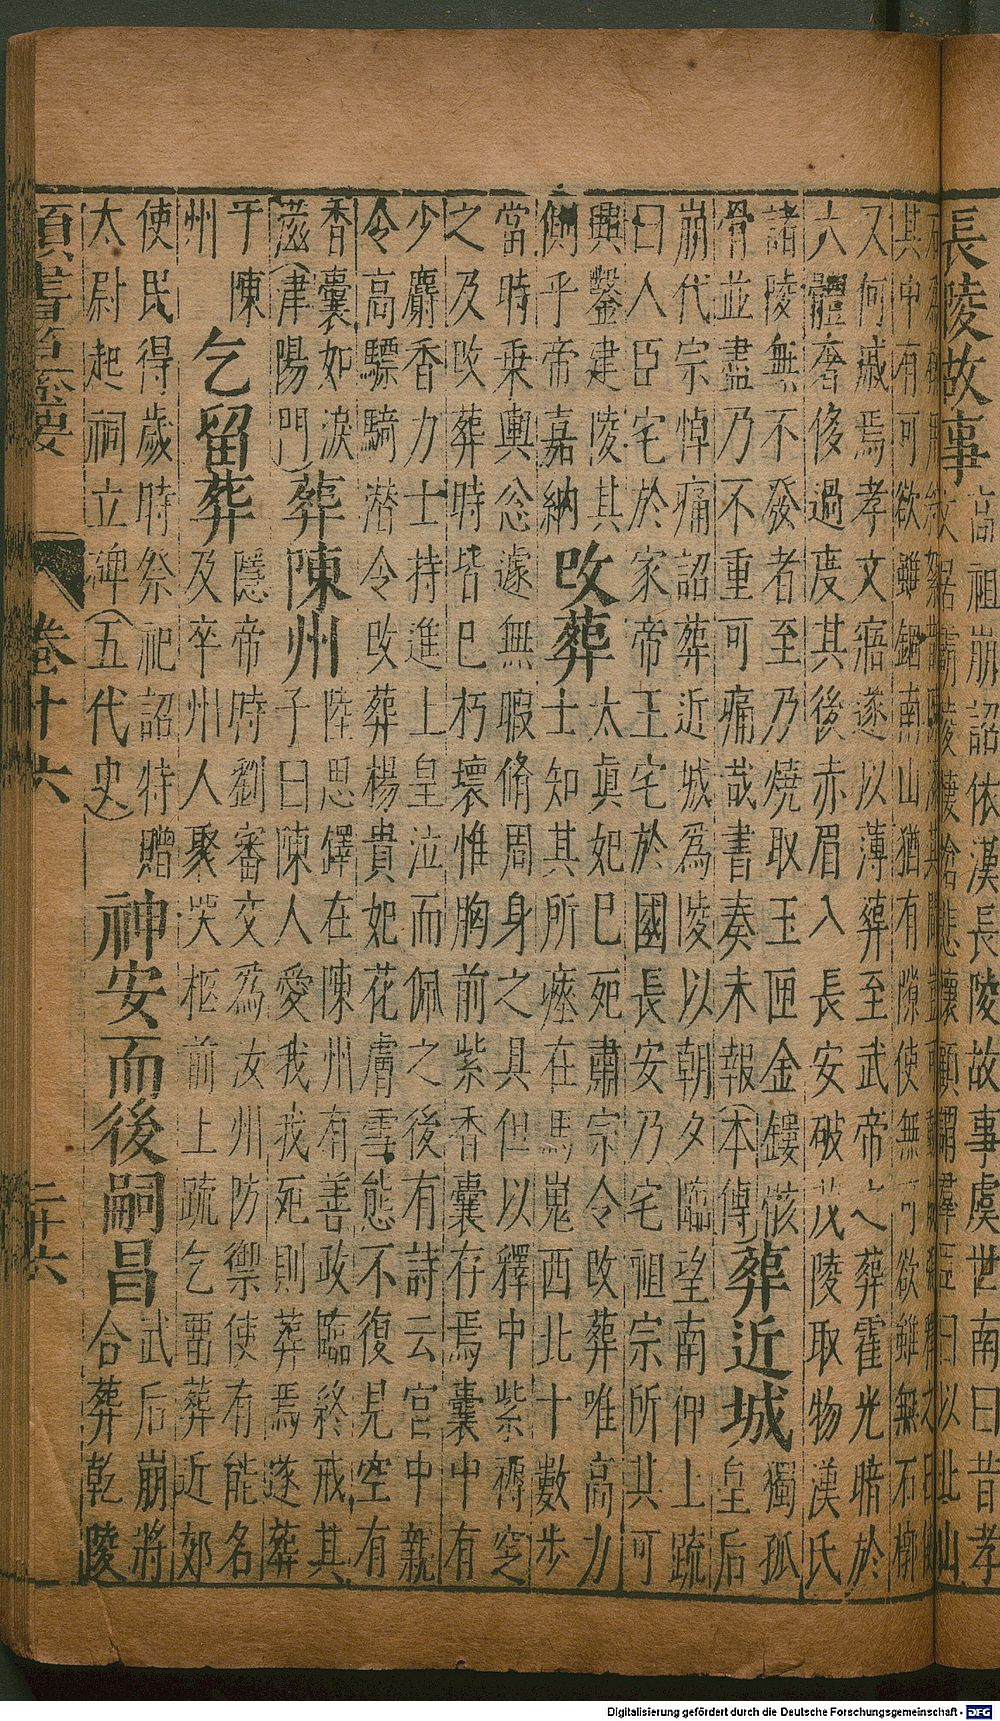 長陵故事
高祖崩詔依漢長陵故事虞世南曰昔孝
文居霸陵悽愴悲懷顧謂羣臣曰以北山
石為用紵絮陳漆其間豈可動哉張釋之曰使
其中有可欲雖錮南山猶有隙使無可欲雖無石槨
又何戚焉孝文寤遂以薄葬至武帝之葬霍光暗於
大體奢侈過度其後赤眉入長安破茂陵取物漢氏
諸陵無不發者至乃燒取玉匣金鏤骸
骨並盡乃不重可痛哉書奏未報(本傳)
葬近城
獨孤
皇后
崩代宗悼痛詔葬近城為陵以朝夕臨望南仰上疏
曰人臣宅於家帝王宅於國長安乃宅祖宗所其可
興鑿建陵其
側乎帝嘉納
改葬
太真妃巳死肅宗令改葬唯高力
士知其所瘞在馬嵬西北十數步
當時乗輿忩遽無暇脩周身之具但以釋中紫褥窆
之及改葬時皆巳朽壞惟胸前紫香囊存焉囊中有
少麝香力士持進上皇泣而佩之後有詩云宮中親
令高驃騎潜令改葬楊貴妃花膚雪態不復見空有
香囊如淚
滋(津陽門)
葬陳州
陸思鐸在陳州有善政臨終戒其
子曰陳人愛我我死則葬焉遂葬
于陳
州
乞留葬
隱帝時劉審交為汝州防禦使有能名
及卒州人聚哭柩前上疏乞畱葬近郊
使民得歲時祭祀詔特贈
太尉起祠立碑(五代史)
神安而後嗣昌
武后崩將
合葬乾陵
卷十六
二十六
Digitalisierung gefördert durch die Deutsche Forschungsgemeinschaft - DFG